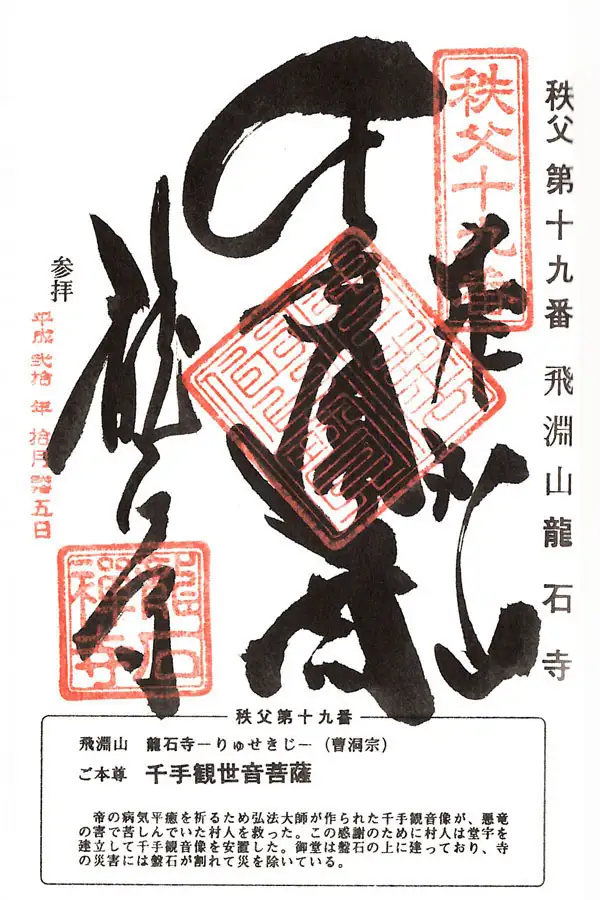 秩父第十九番 飛淵山龍石寺
秩父十九番
奉拝
龍石寺
参拝
平成弐拾年拾月廿五日
龍石
禅寺
秩父第十九番
飛淵山 龍石寺―りゅせきじ―(曹洞宗)
ご本尊 千手観世音菩薩
帝の病気平癒を祈るため弘法大師が作られた千手観音像が、悪竜
の害で苦しんでいた村人を救った。この感謝のために村人は堂宇を
建立して千手観音像を安置した。御堂は盤石の上に建っており、寺
の災害には盤石が割れて災を除いている。